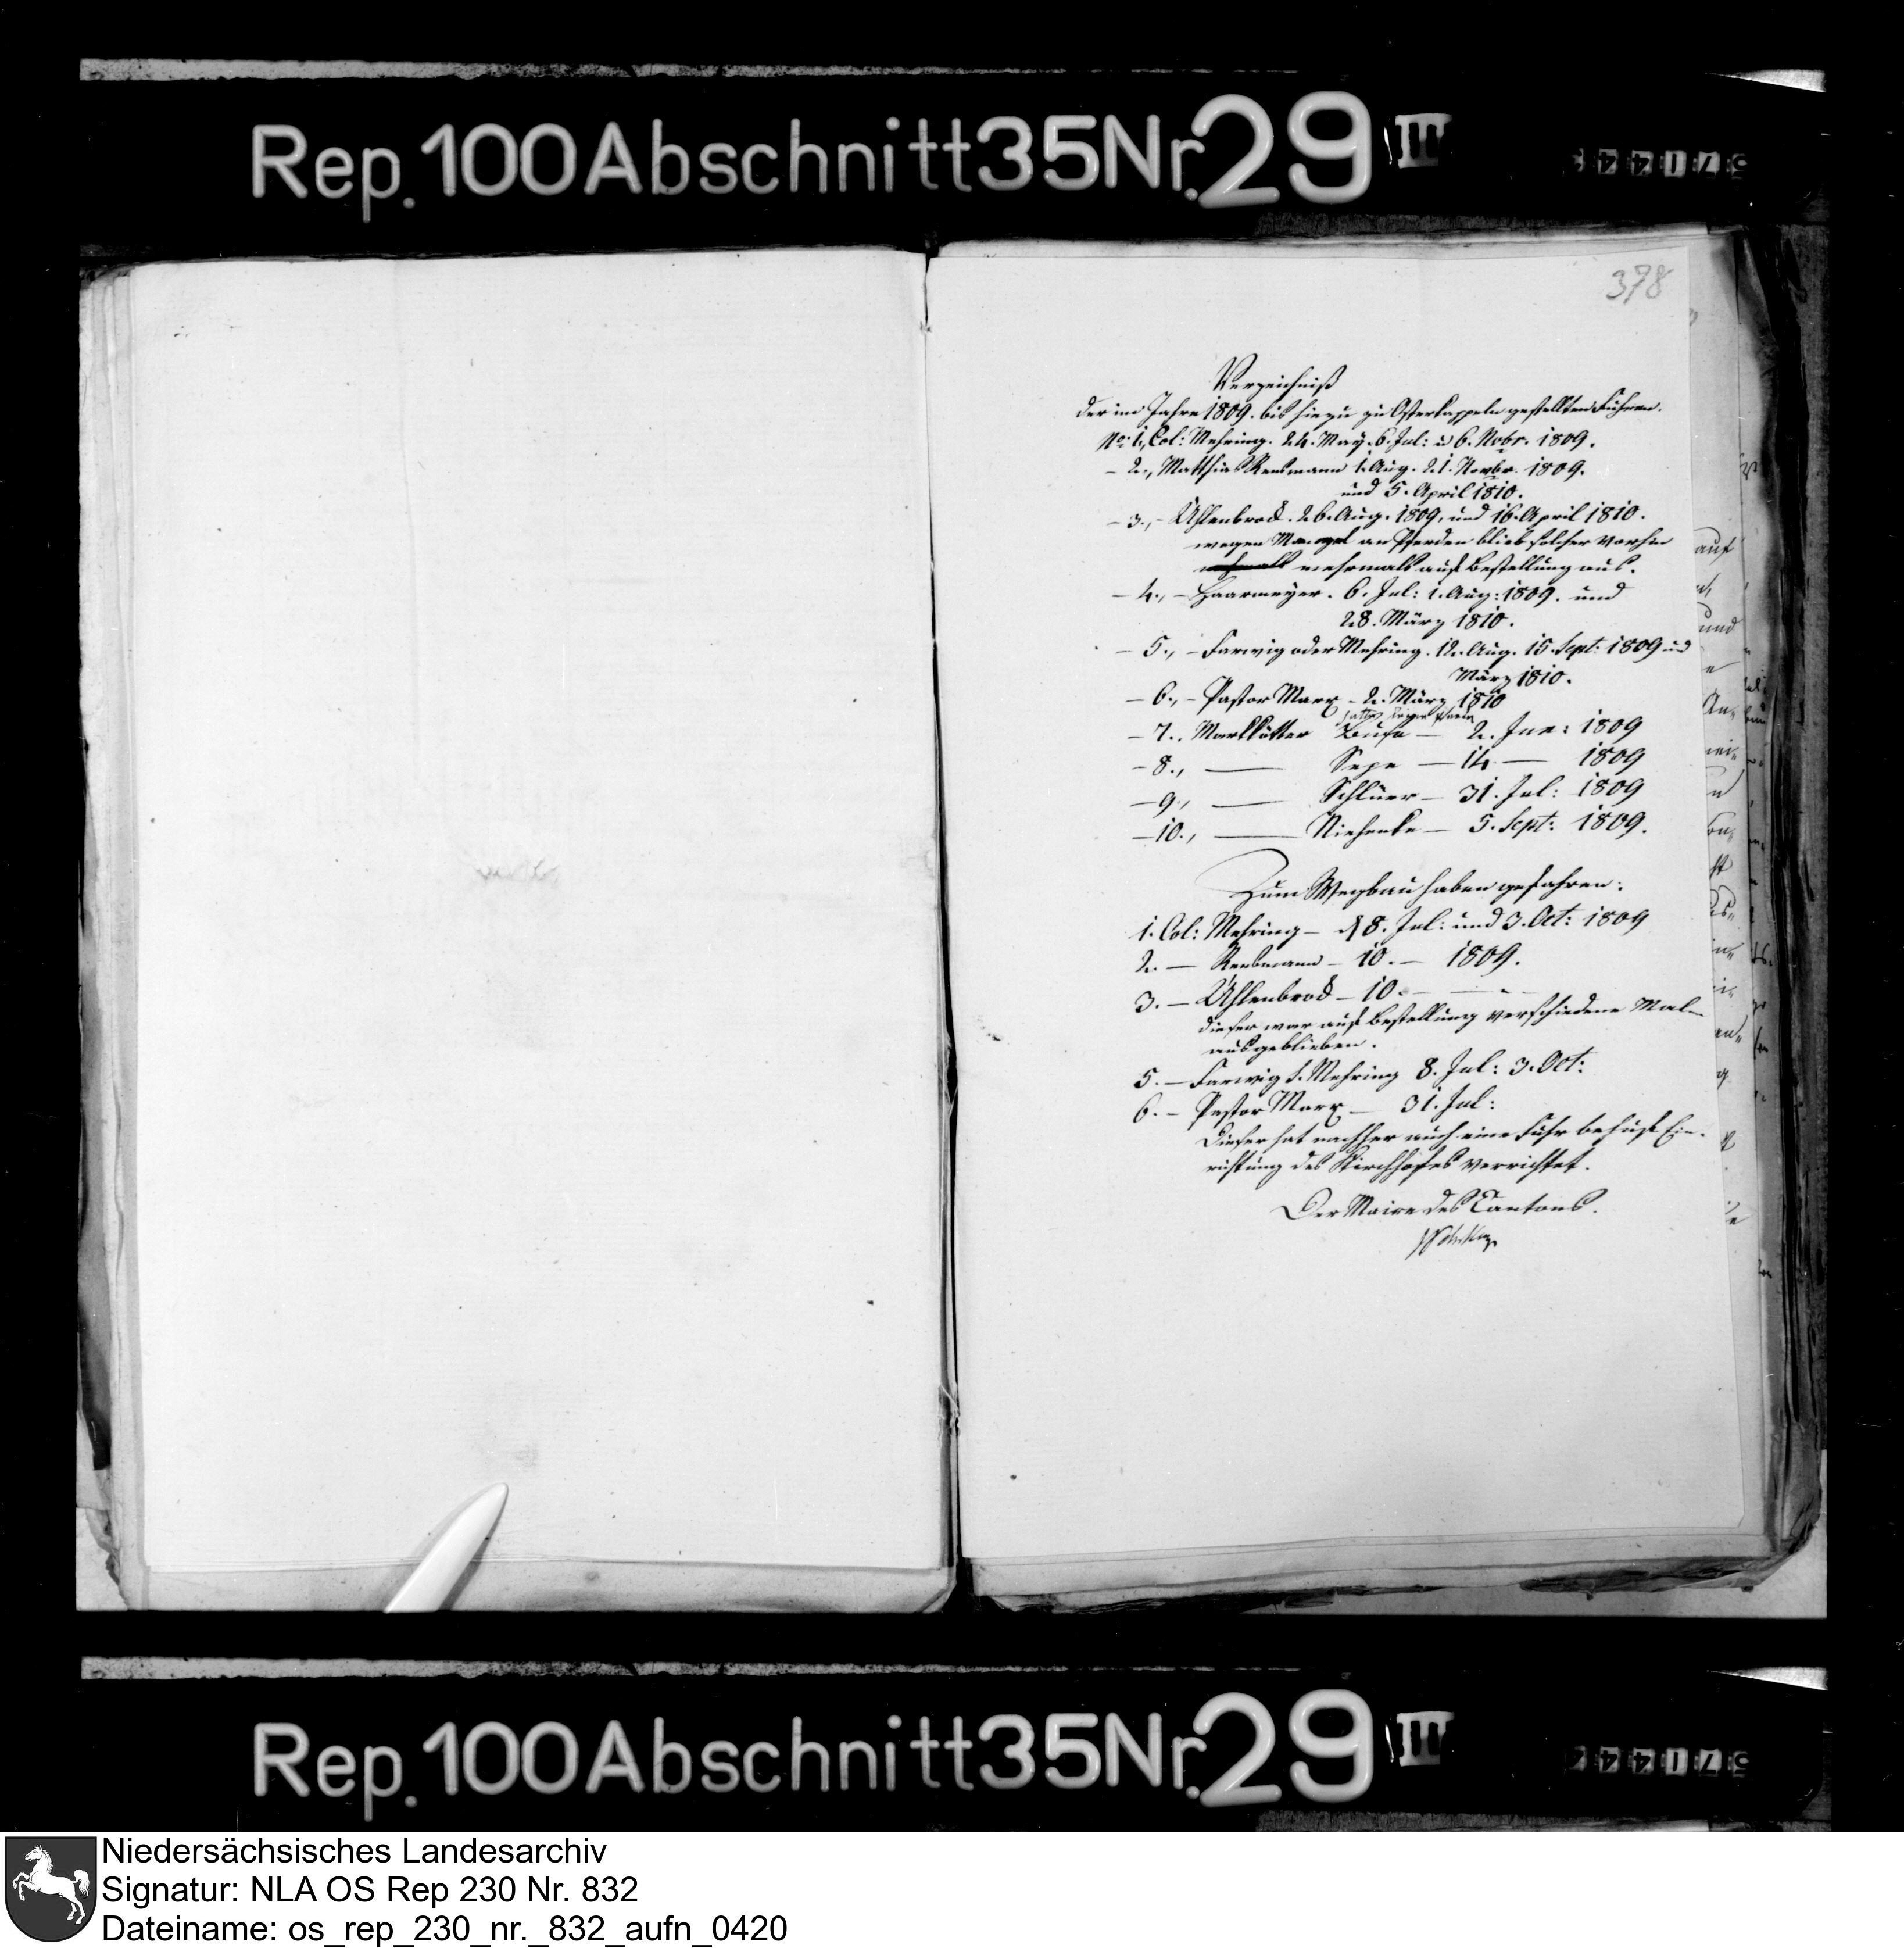 Rep. 100 Abschnitt 35 Nr. 29 III
378
Verzeichniß
der im Jahre 1809. bis hiezu zu Osterkappeln gestellten Fuhren.
No: 1., Col: Mehring. 24. May. 6. Jul: u 6. Nvbr. 1809.
- 2., Matthias Rensmann 1. Aug. 21. Novbr. 1809.
und 5. April 1810.
- 3., - Uhlenbrock. 26. Aug. 1809, und 16. April 1810.
wegen Mangel an Pferden blieb solcher vorhin
mehrmals auf Bestellung aus.
- 4., - Haarmeyer. 6. Jul: 1. Aug: 1809. und
28. März 1810.
- 5., - Farwig oder Mehring. 12. Aug. 15. Sept: 1809 und
März 1810.
- 6., - Pastor Marx - 2. März 1810
- 7., Markkötter Buse — 2. Jun: 1809
- 8., — Sepe — 14. — 1809
- 9., — Schlüer — 31. Jul: 1809
- 10., — Niehenke — 5. Sept: 1809.
Zum Wegbau haben gefahren:
1. Col: Mehring — d 8. Jul: und 3. Oct: 1809
2. — Rensmann — 10. — 1809.
3. — Uhlenbrock — 10. — —
dieser war auf Bestellung verschiedene Male
ausgeblieben.
5. — Farwig s. Mehring 8. Jul: 3. Oct:
6. — Pastor Marx — 31. Jul:
Dieser hat nachher auch eine Fuhr behuf Ein-
richtung des Kirchhofes verrichtet.
Der Maire des Cantons.
auf
und
An-
Rep. 100 Abschnitt 35 Nr. 29 III
Niedersächsisches Landesarchiv
Signatur: NLA OS Rep 230 Nr. 832
Dateiname: os_rep_230_nr._832_aufn_0420